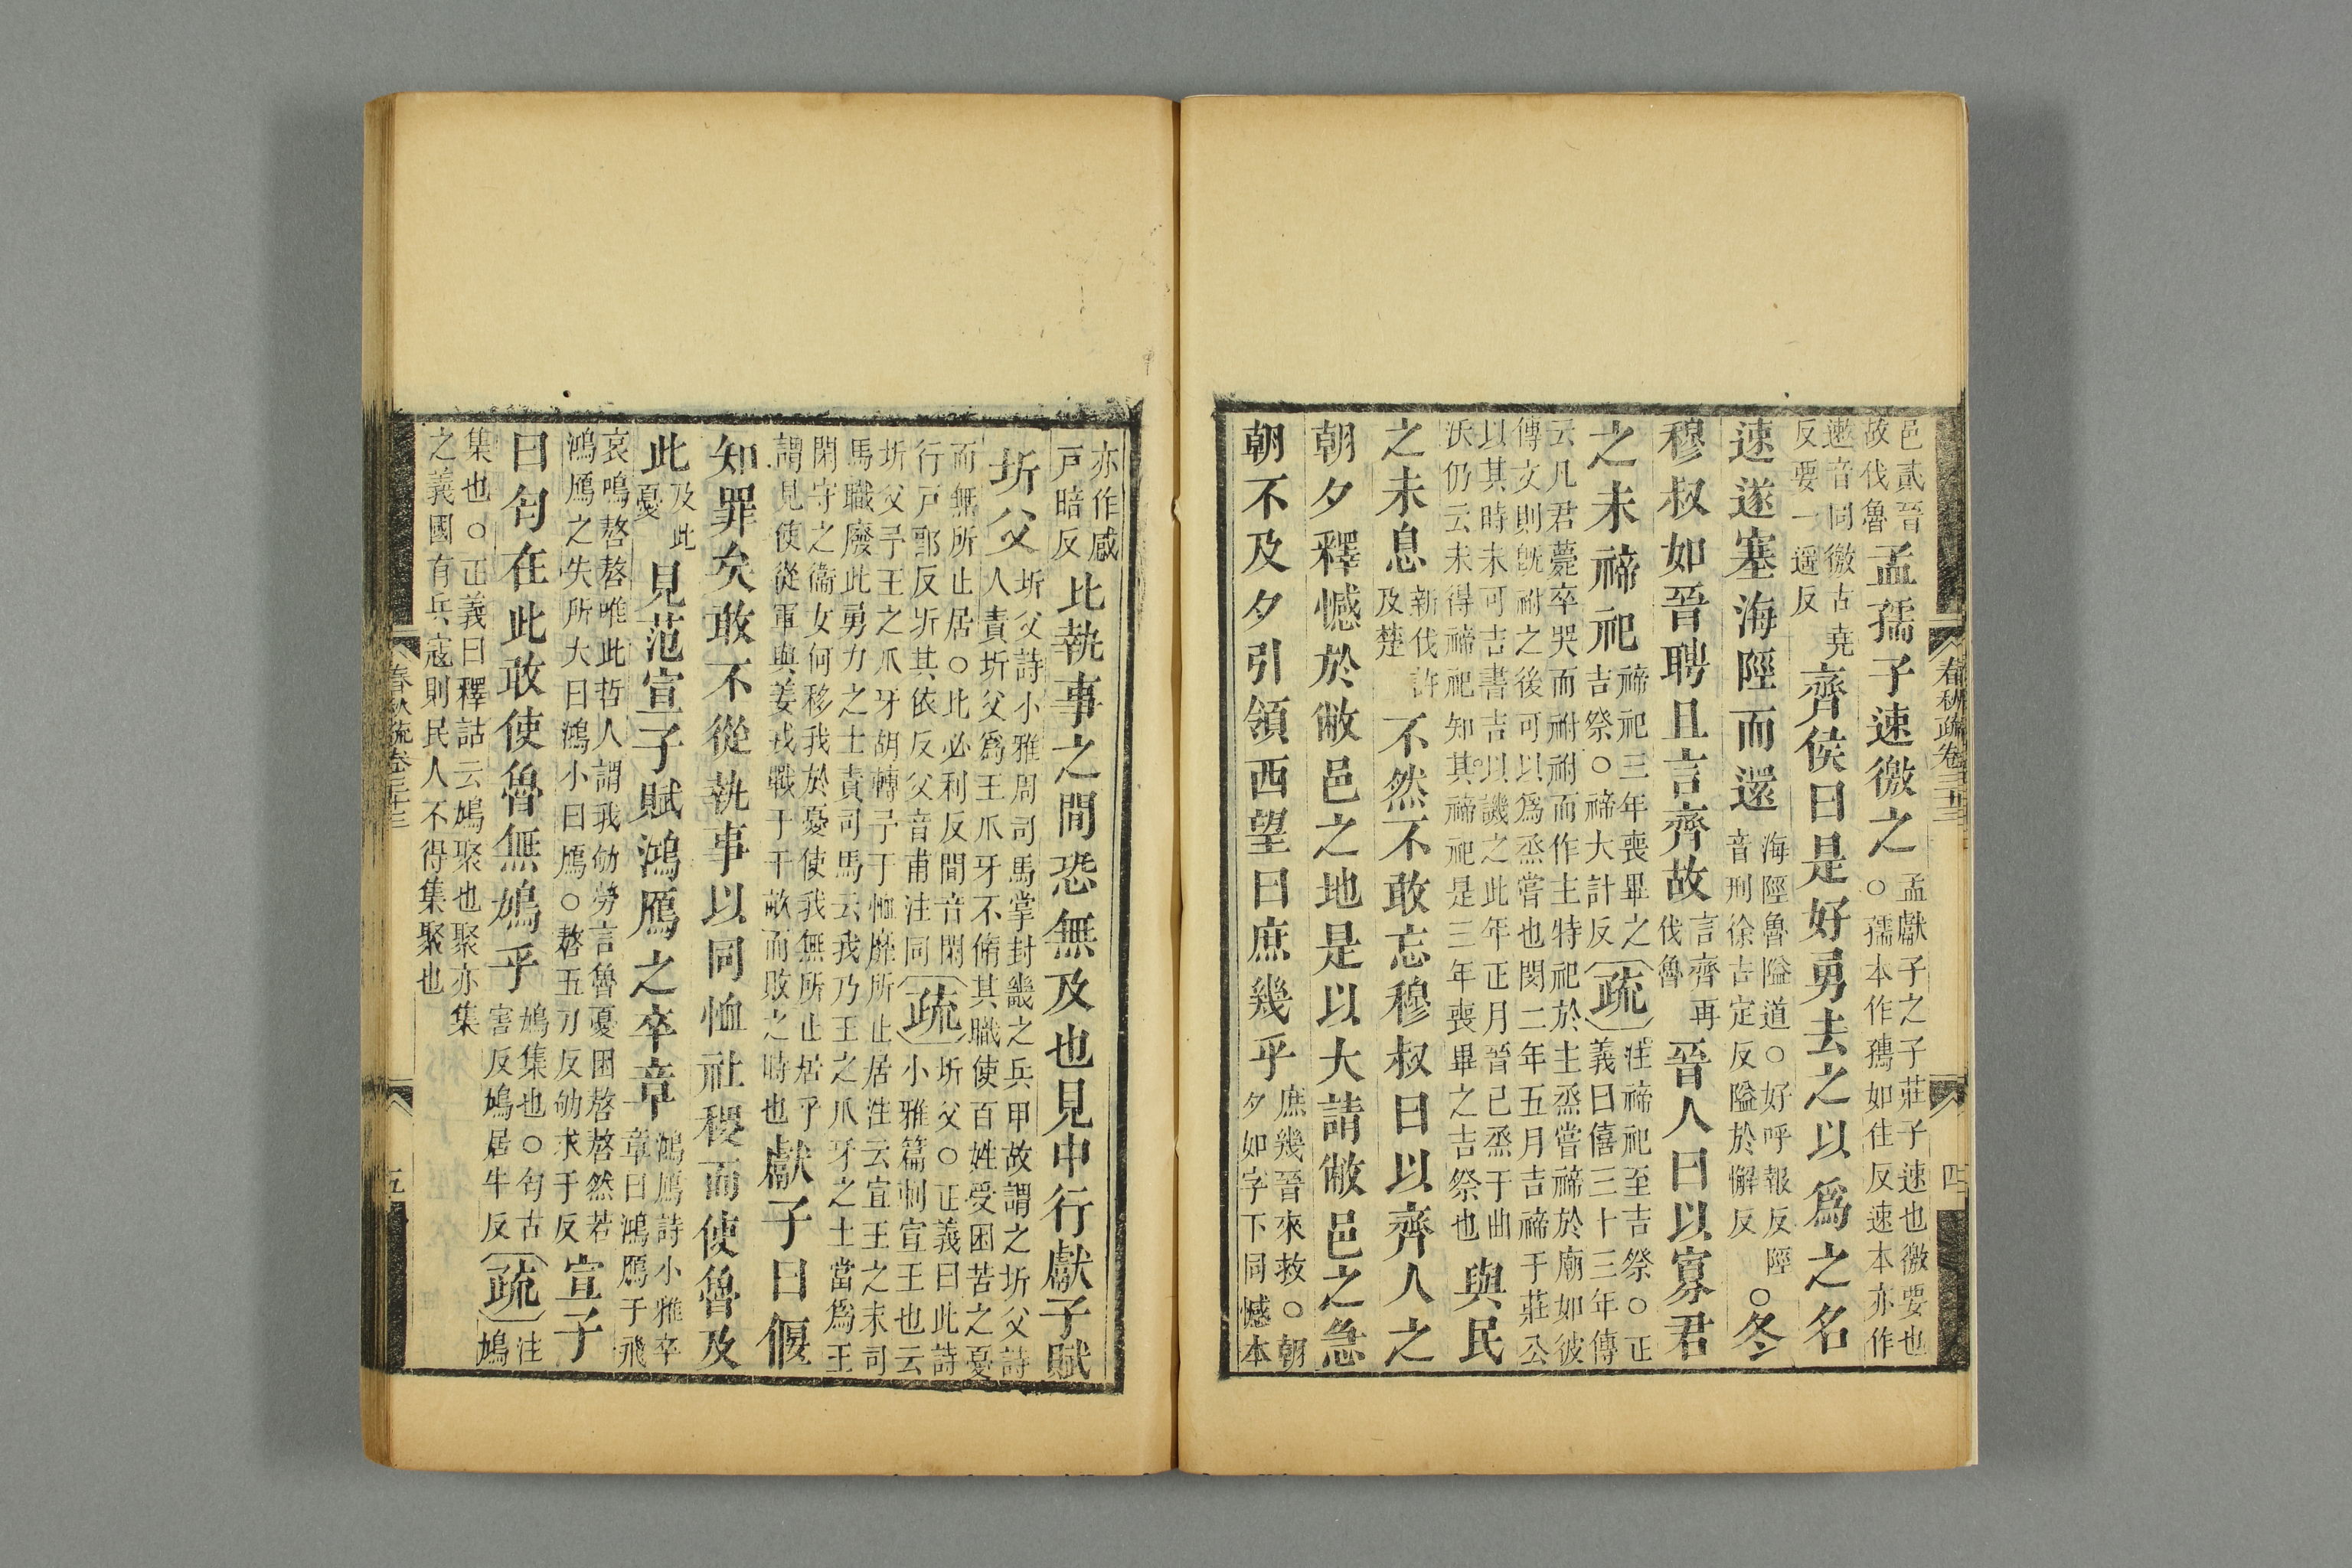 春秋疏卷三十三 四
邑貳晉故伐魯孟孺子速徼之孟獻子之子莊子速也徼要也○孺本作𤜹如住反速本亦作
遬音同徼古堯反要一遥反齊侯曰是好勇去之以爲之名
速遂塞海陘而還海陘魯隘道○好呼報反陘音刑徐古定反隘於懈反○冬
穆叔如晉聘且言齊故言齊再伐魯晉人曰以寡君
之未禘祀禘祀三年喪畢之吉祭○禘大計反疏注禘祀至吉祭○正義曰僖三十三年傳
云凡君薨卒哭而祔祔而作主特祀於主烝嘗禘於廟如彼傳文則旣祔之後可以爲烝嘗也閔二年五月吉禘于莊公
以其時未可吉書吉以譏之此年正月晉已烝于曲沃仍云未得禘祀知其禘祀是三年喪畢之吉祭也與民
之未息新伐許及楚不然不敢忘穆叔曰以齊人之
朝夕釋憾於敝邑之地是以大請敝邑之急
朝不及夕引領西望曰庶幾乎庶幾晉來救○朝夕如字下同憾本
亦作感戸暗反比執事之間恐無及也見中行獻子賦
圻父圻父詩小雅周司馬掌封畿之兵甲故謂之圻父詩人責圻父爲王爪牙不脩其職使百姓受困苦之憂
而無所止居○比必利反間音閑行戸郎反圻其依反父音甫注同疏圻父○正義曰此詩小雅篇刺宣王也云
圻父予王之爪牙胡轉予于恤靡所止居注云宣王之末司馬職廢此勇力之士責司馬云我乃王之爪牙之士當爲王
閑守之衞女何移我於憂使我無所止居乎謂見使從軍與姜戎戰于千畝而敗之時也獻子曰偃
知罪矣敢不從執事以同恤社稷而使魯及
此及此憂見范宣子賦鴻鴈之卒章鴻鴈詩小雅卒章曰鴻鴈于飛
哀鳴嗸嗸唯此哲人謂我劬勞言魯憂困嗸嗸然若鴻鴈之失所大曰鴻小曰鴈○嗸五刀反劬求于反宣子
曰匄在此敢使魯無鳩乎鳩集也○匄古害反鳩居牛反疏注鳩
集也○正義曰釋詁云鳩聚也聚亦集之義國有兵寇則民人不得集聚也
春秋疏卷三十三 五